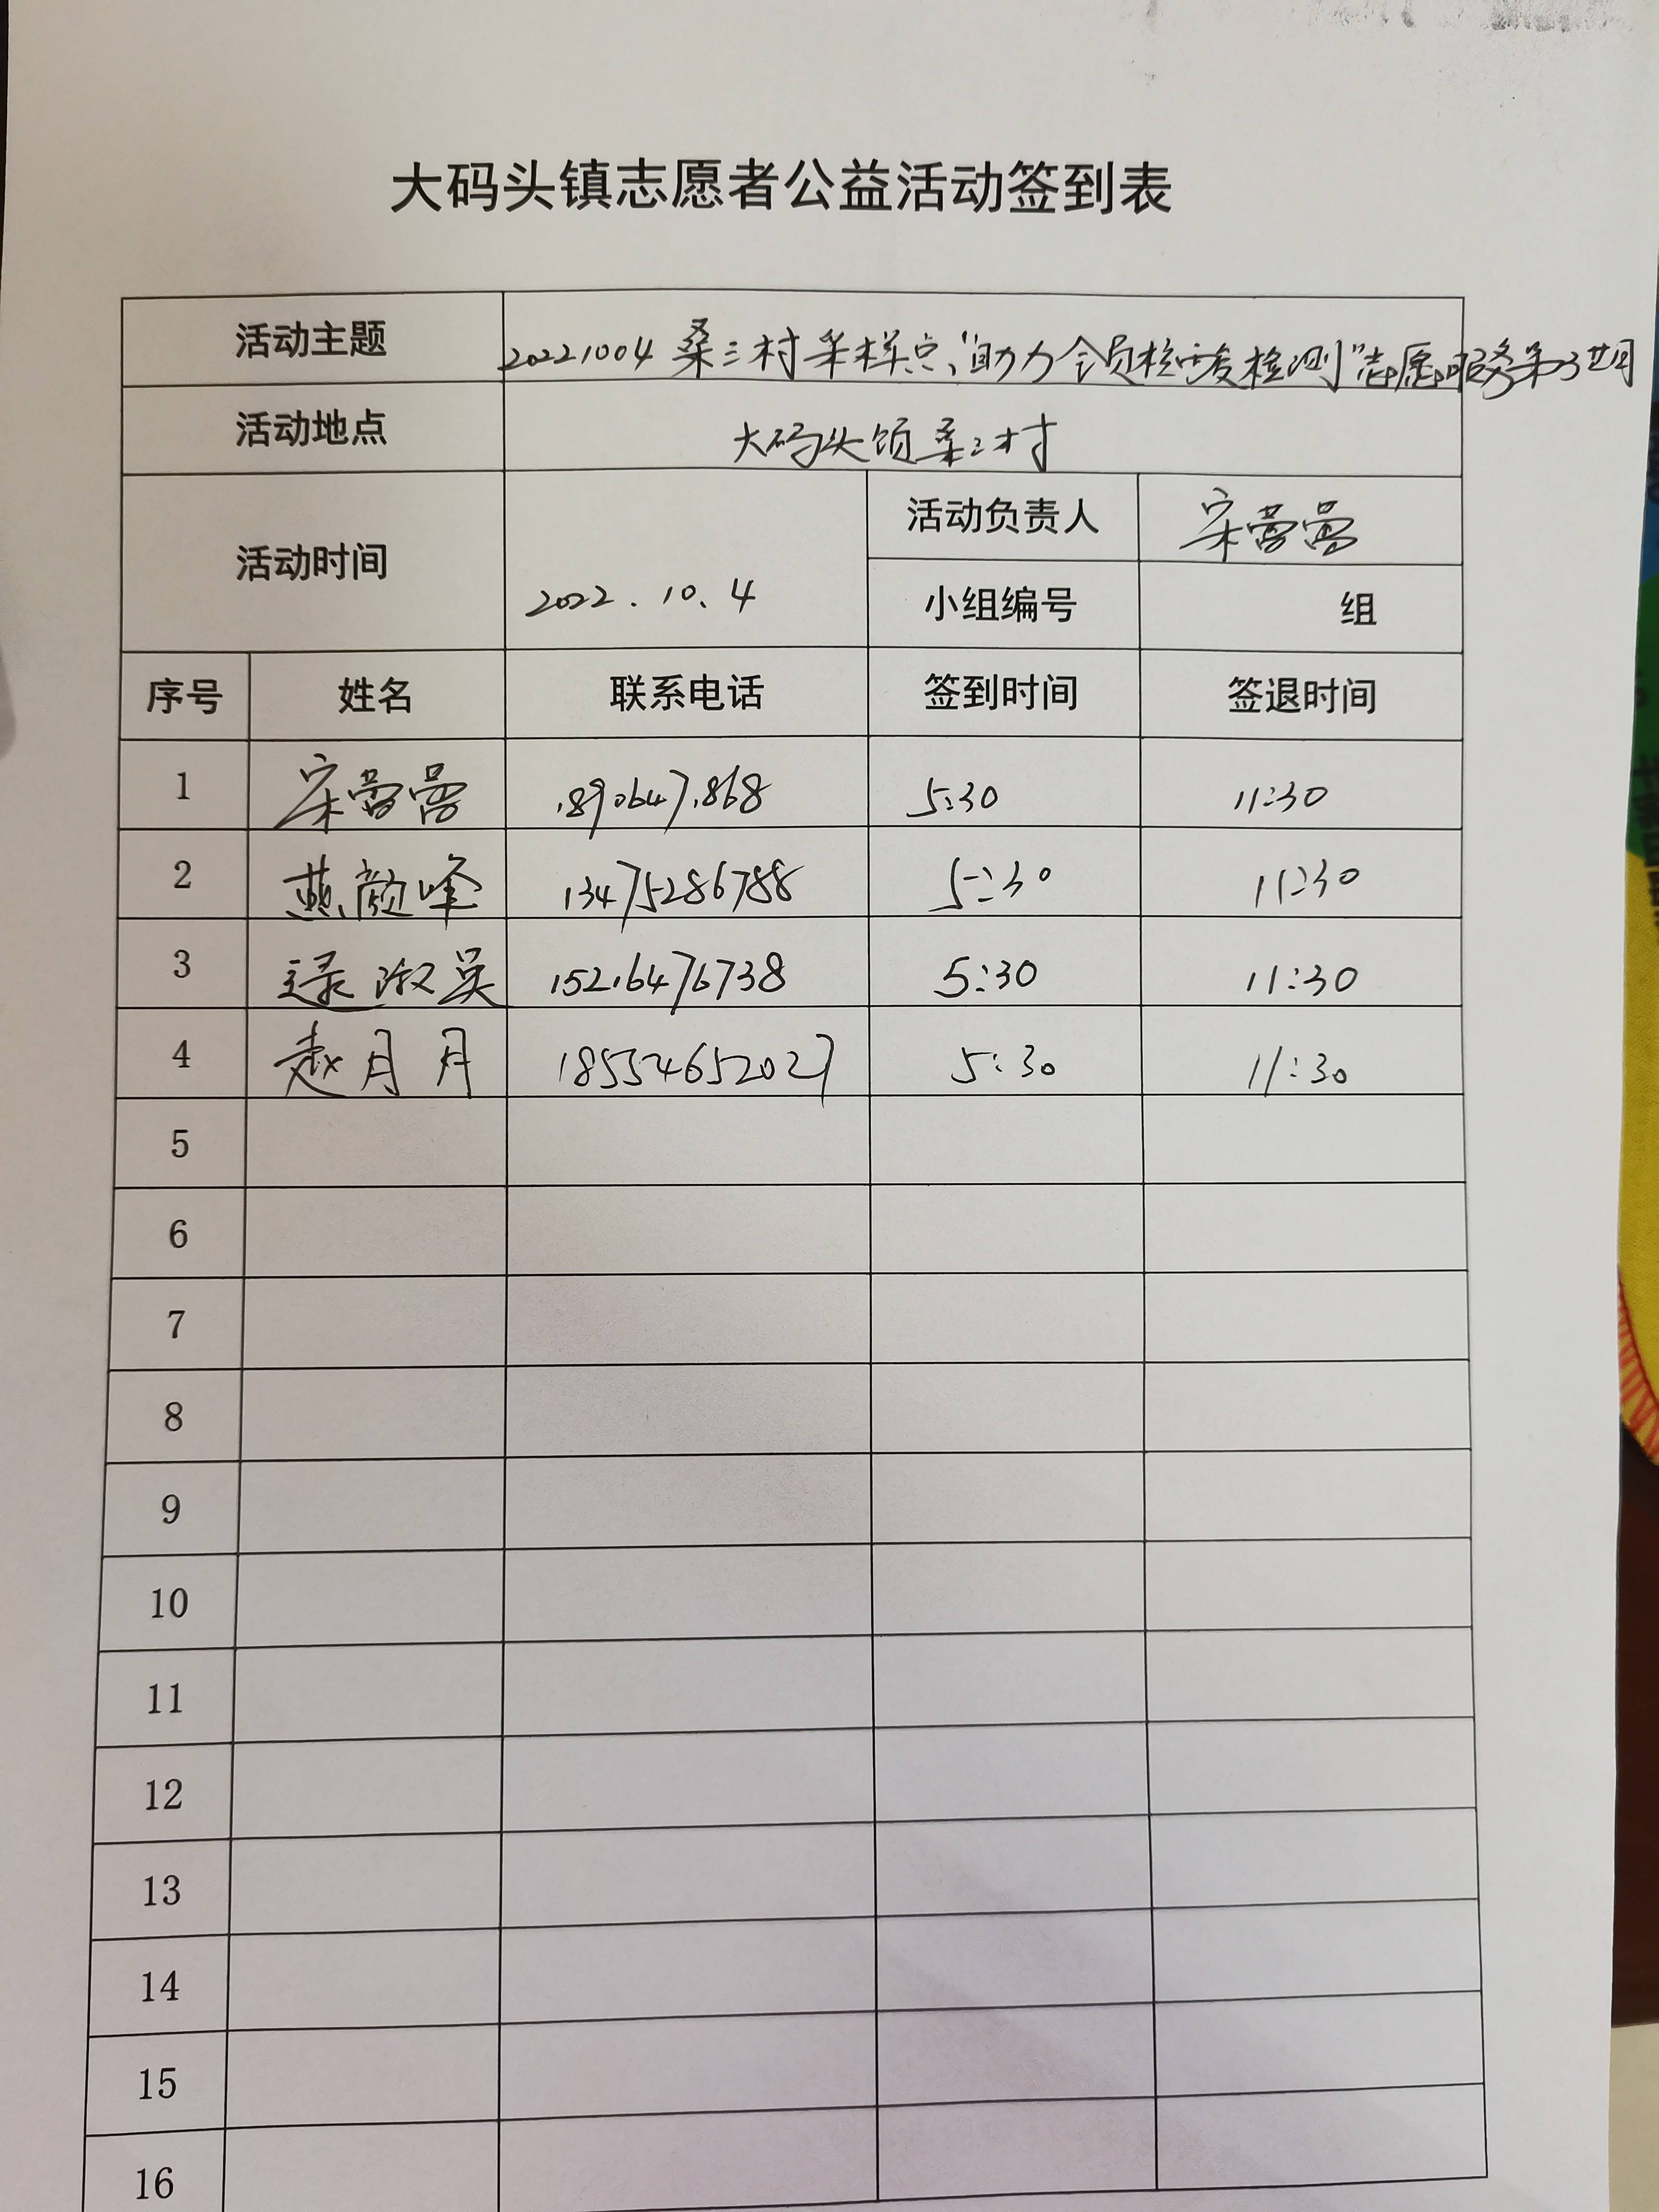 大码头镇志愿者公益活动签到表
活动主题 20221004桑三村采样点"助力全员核酸检测"志愿服务第3期
活动地点 大码头镇桑三村
活动时间 2022.10.4 活动负责人 宋营营
小组编号 组
序号 姓名 联系电话 签到时间 签退时间
1 宋营营 18906471868 5:30 11:30
2 燕颜峰 13475286788 5:30 11:30
3 逯淑吴 15216476738 5:30 11:30
4 赵月月 18554652027 5:30 11:30
5
6
7
8
9
10
11
12
13
14
15
16